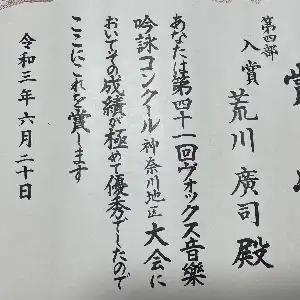 第四部
入賞
荒川廣司殿
あなたは第四十一回ヴォックス音樂
吟詠コンクール神奈川地区大会に
おいてその成績が極めて優秀でしたので
ここにこれを賞します
令和三年六月二十日